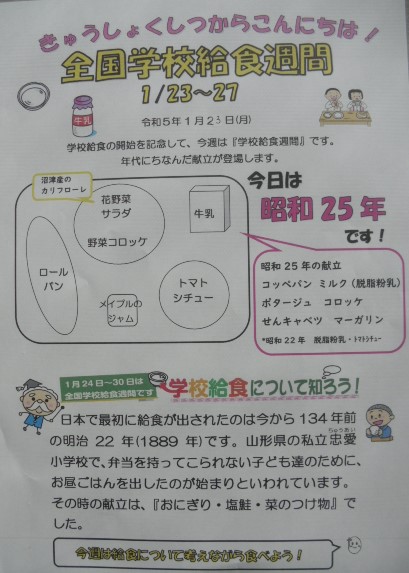 きゅうしょくしつからこんにちは！
全国学校給食週間
1/23～27
牛乳
令和５年１月２３日(月)
学校給食の開始を記念して、今週は『学校給食週間』です。
年代にちなんだ献立が登場します。
沼津産の
カリフローレ
花野菜
サラダ
野菜コロッケ
牛乳
ロール
パン
メイプルの
ジャム
トマト
シチュー
今日は
昭和 25 年
です！
昭和 25 年の献立
コッペパン ミルク（脱脂粉乳）
ポタージュ コロッケ
せんキャベツ マーガリン
*昭和 22 年 脱脂粉乳・トマトシチュー
１月２４日～３０日は
全国学校給食週間です
学校給食について知ろう！
日本で最初に給食が出されたのは今から 134 年前
の明治 22 年(1889 年)です。山形県の私立忠愛
ちゅうあい
小学校で、弁当を持ってこられない子ども達のために、
お昼ごはんを出したのが始まりといわれています。
その時の献立は、『おにぎり・塩鮭・菜のつけ物』で
した。
今週は給食について考えながら食べよう！